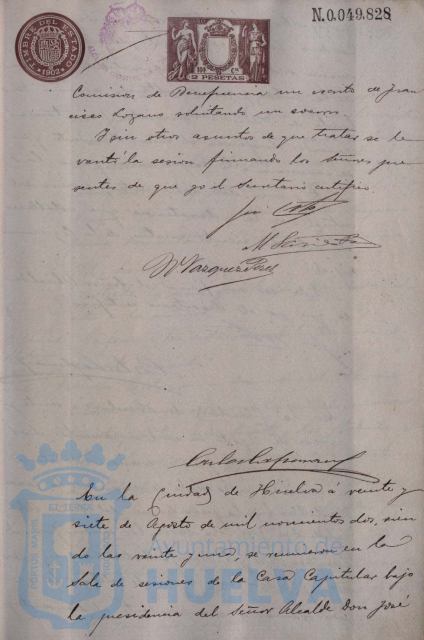 N.0.049.828
TIMBRE DEL ESTADO
1902
100 Cs
2 PESETAS
Comision de Beneficencia un escrito de Fran
cisco Lozano solicitando un socorro.
Y sin otros asuntos de que tratar se le
vantó la sesion firmando los Señores pre
sentes de que yo el Secretario certifico.
M. Vazquez Perez
En la Ciudad de Huelva á veinte y
siete de Agosto de mil novecientos dos, sien
do las veinte y una, se reunieron en la
Sala de sesiones de la Casa Capitular bajo
la presidencia del Señor Alcalde Don José
Ayuntamiento de
HUELVA